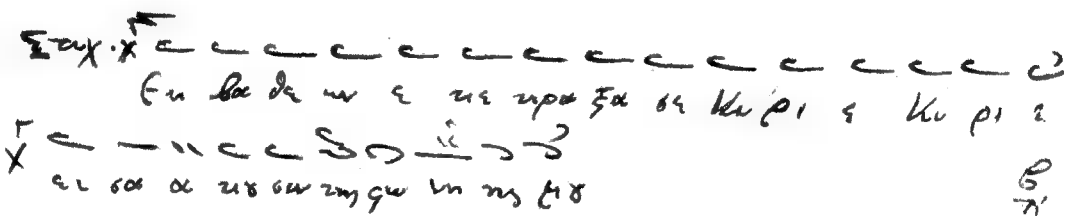 Στιχ. Εκ βα θε ων ε κε κρα ξα σε Κυ ρι ε Κυ ρι ε
ει σα α κȣ σον της φω νη ης μȣ